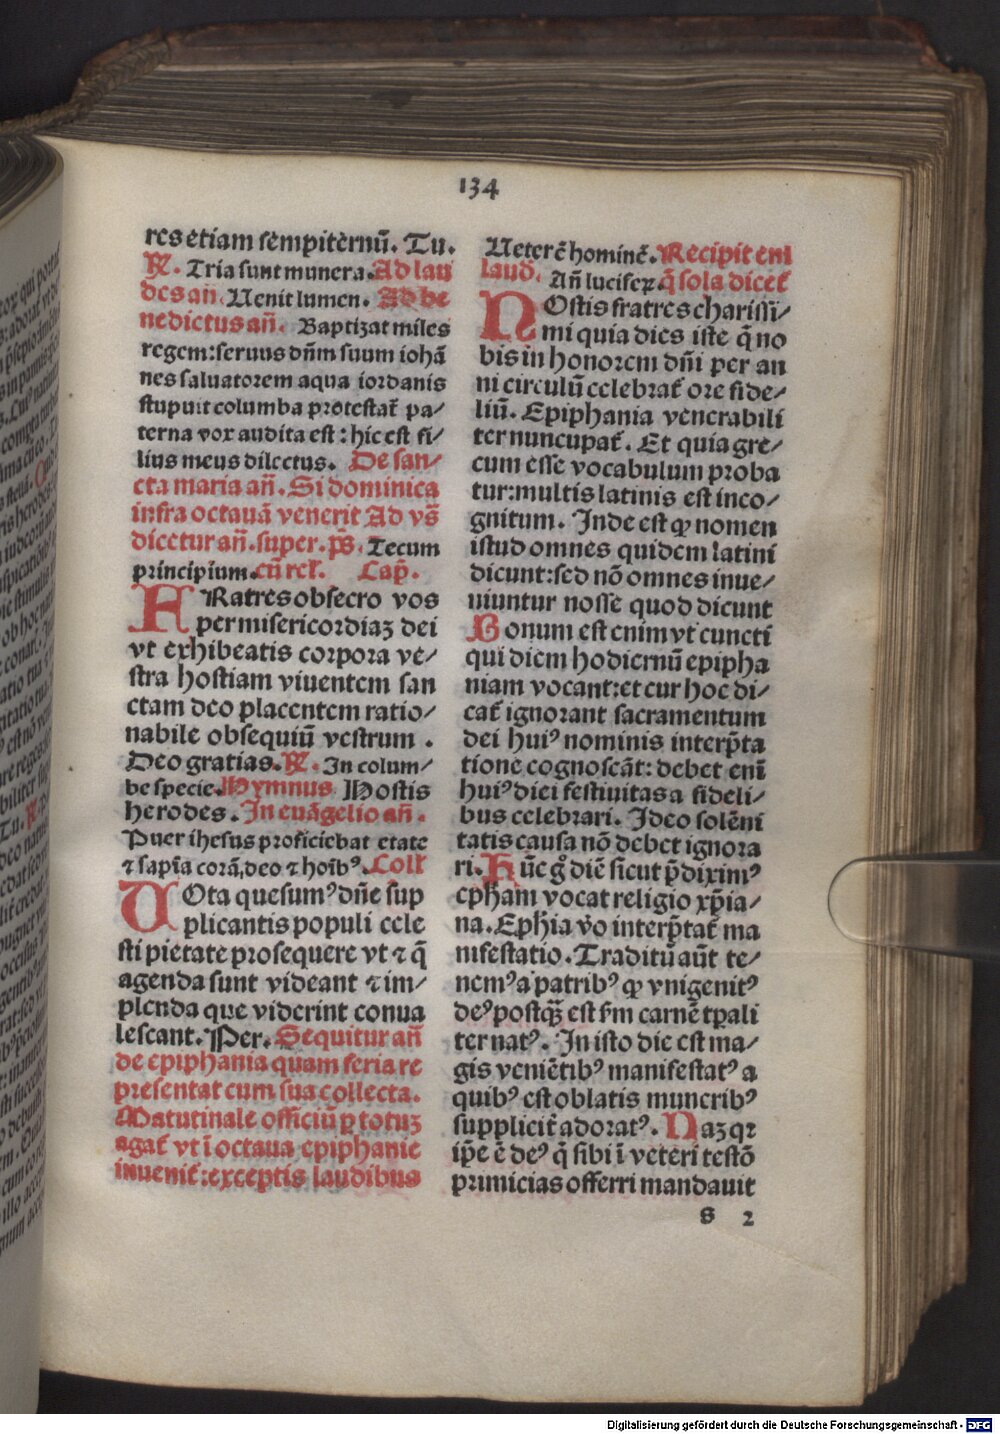 134
res etiam sempiternū. Tu.
℟. Tria sunt munera. Ad lau
des añ. Uenit lumen. Ad be
nedictus añ. Baptizat miles
regem: seruus dñm suum iohā
nes saluatorem aqua iordanis
stupuit columba protestat̄ pa⸗
terna vox audita est: hic est fi⸗
lius meus dilectus. De san⸗
cta maria añ. Si dominica
infra octauā venerit Ad vs̄
dicetur añ. super. ps̄. Tecum
principium. cū rel̄. Cap̄.
FRatres obsecro vos
per misericordiaꝫ dei
vt exhibeatis corpora ve⸗
stra hostiam viuentem san
ctam deo placentem ratio⸗
nabile obsequiū vestrum.
Deo gratias. ℟. In colum⸗
be specie. Hymnus Hostis
herodes. In euāgelio añ.
Puer ihesus proficiebat etate
⁊ sapīa corā, deo ⁊ hoībꝰ. Coll̄
UOta quesumꝰ dñe sup
plicantis populi cele
sti pietate prosequere vt ⁊ q̄
agenda sunt videant ⁊ im⸗
plenda que viderint conua
lescant. Per. Sequitur añ
de epiphania quam feria re
presentat cum sua collecta.
Matutinale officiū ꝑ totuꝫ
agat̄ vt ī octaua epiphanie
inuenit̄: exceptis laudibus
Ueterē hominē. Recipit eni
laud̄. Añ luciferꝝ. q̄ sola dicet̄
NOstis fratres charissi⸗
mi quia dies iste q̄ no
bis in honorem dñi per an
ni circulū celebrat̄ ore fide⸗
liū. Epiphania venerabili
ter nuncupat̄. Et quia gre⸗
cum esse vocabulum proba
tur: multis latinis est inco⸗
gnitum. Inde est ꝙ nomen
istud omnes quidem latini
dicunt: sed nō omnes inue⸗
niuntur nosse quod dicunt
Bonum est enim vt cuncti
qui diem hodiernū epipha
niam vocant: et cur hoc di⸗
cat̄ ignorant sacramentum
dei huiꝰ nominis interp̄ta
tione cognoscāt: debet enī
huiꝰ diei festiuitas a fideli⸗
bus celebrari. Ideo solēni
tatis causa nō debet ignora
ri. Hūc gͦ diē sicut p̄diximꝰ
eph̄am vocat religio xp̄ia⸗
na. Eph̄ia v̄o interp̄tat̄ ma
nifestatio. Traditū aūt te⸗
nemꝰ a patribꝰ ꝙ vnigenitꝰ
deꝰ postq̄ꝫ est s̄m carnē tp̄ali
ter natꝰ. In isto die est ma⸗
gis veniētibꝰ manifestatꝰ a
quibꝰ est oblatis muneribꝰ
suppliciт̄ adoratꝰ. Naꝫ qꝛ
ip̄e ē deꝰ q̄ sibi ī veteri testō
primicias offerri mandauit
S 2
Digitalisierung gefördert durch die Deutsche Forschungsgemeinschaft - DFG